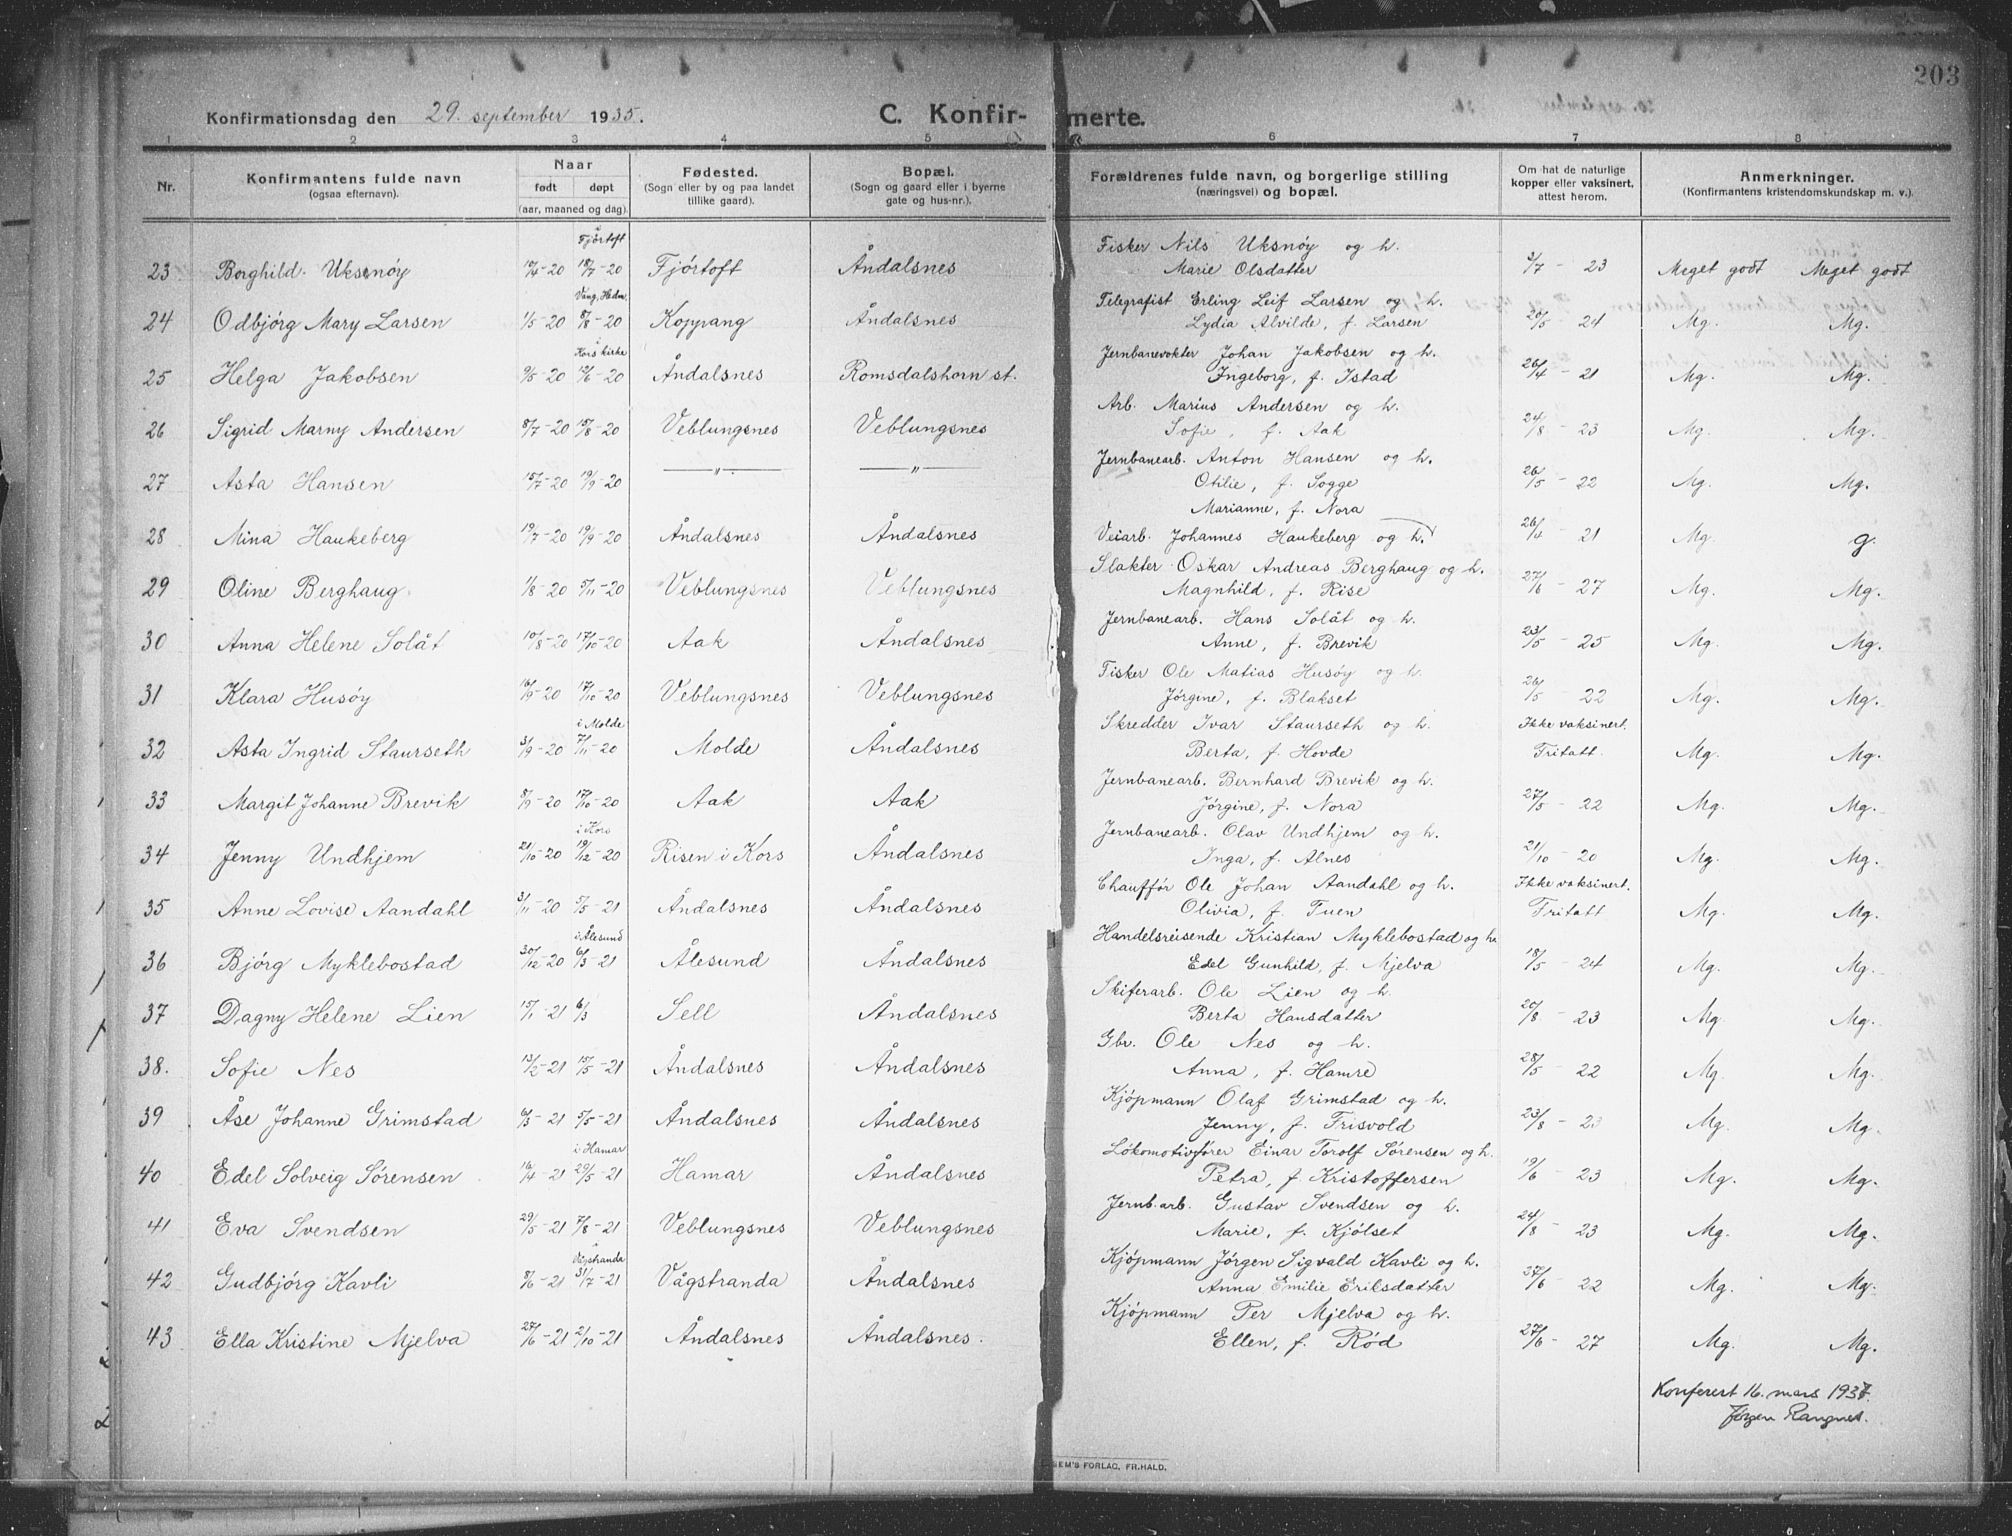 203
Konfirmationsdag den 29. september 1935.
C. Konfirmerte.
1 2 3 4 5 6 7 8
Nr.
Konfirmantens fulde navn
(ogsaa efternavn).
Naar
født døpt
(aar, maaned og dag)
Fødested.
(Sogn eller by og paa landet
tillike gaard).
Bopæl.
(Sogn og gaard eller i byerne
gate og hus-nr.).
Forældrenes fulde navn, og borgerlige stilling
(næringsvei) og bopæl.
Om hat de naturlige
kopper eller vaksinert,
attest herom.
Anmerkninger.
(Konfirmantens kristendomskundskap m. v.).
Fjørtoft Fisker Nils Uksnøy og h.
23 Borghild Uksnøy 18/7-20 Fjørtoft Åndalsnes Marie Olsdatter 3/7 - 23 Meget godt Meget godt
Vang, Hedm. Telegrafist Erling Leif Larsen og h.
24 Odbjørg Mary Larsen 1/5-20 8/8-20 Koppang Åndalsnes Lydia Alvilde, f. Larsen 20/5 - 24 Mg. Mg.
i Kors kirke Jernbanevokter Johan Jakobsen og h.
25 Helga Jakobsen 9/5-20 Åndalsnes Romsdalshorn st. Ingeborg, f. Istad 26/4 - 21 Mg. Mg.
Arb. Marius Andersen og h.
26 Sigrid Marny Andersen 8/7-20 15/8-20 Veblungsnes Veblungsnes Sofie, f. Aak 24/8 - 23 Mg. Mg.
Jernbanearb. Anton Hansen og h.
27 Asta Hansen 15/7-20 19/9-20 —"— —"— Otilie, f. Sogge 26/5 - 22 Mg. Mg.
Marianne, f. Nora
28 Mina Haukeberg 19/7-20 19/9-20 Åndalsnes Åndalsnes Veiarb. Johannes Haukeberg og h. 26/4 - 21 Mg. g.
Slakter Oskar Andreas Berghaug og h.
29 Oline Berghaug 1/8-20 5/11-20 Veblungsnes Veblungsnes Magnhild, f. Rise 27/6 - 27 Mg. Mg.
Jernbanearb. Hans Solåt og h.
30 Anna Helene Solåt 10/8-20 17/10-20 Aak Åndalsnes Anne, f. Brevik 23/5 - 25 Mg. Mg.
Fisker Ole Matias Husøy og h.
31 Klara Husøy 16/9-20 17/10-20 Veblungsnes Veblungsnes Jørgine, f. Blakset 26/5 - 22 Mg. Mg.
i Molde Skredder Ivar Staurseth og h. Ikke vaksinert.
32 Asta Ingrid Staurseth 3/9-20 7/11-20 Molde Åndalsnes Berta, f. Hovde Fritatt. Mg. Mg.
Jernbanearb. Bernhard Brevik og h.
33 Margit Johanne Brevik 8/9-20 17/10-20 Aak Aak Jørgine, f. Nora 27/5 - 22 Mg. Mg.
i Kors Jernbanearb. Olav Undhjem og h.
34 Jenny Undhjem 21/10-20 19/12-20 Risen i Kors Åndalsnes Inga, f. Alnes 21/10 - 20 Mg. Mg.
Chauffør Ole Johan Aandahl og h. Ikke vaksinert.
35 Anne Lovise Aandahl 3/11-20 5/5-21 Åndalsnes Åndalsnes Olivia, f. Tuen Fritatt Mg. Mg.
i Ålesund Handelsreisende Kristian Myklebostad og h.
36 Bjørg Myklebostad 30/12-20 6/3-21 Ålesund Åndalsnes Edel Gunhild, f. Mjelva 18/5 - 24 Mg. Mg.
Skiferarb. Ole Lien og h.
37 Dagny Helene Lien 15/1-21 6/3 Sell Åndalsnes Berta Hansdatter 20/8 - 23 Mg. Mg.
Gbr. Ole Nes og h.
38. Sofie Nes 13/2-21 15/5-21 Åndalsnes Åndalsnes Anna, f. Hamre 28/5 - 22 Mg. Mg.
Kjøpmann Olaf Grimstad og h.
39 Åse Johanne Grimstad 6/3-21 5/5-21 Åndalsnes Åndalsnes Jenny, f. Frisvold 23/8 - 23 Mg. Mg.
i Hamar Lokomotivfører Einar Torolf Sørensen og h.
40 Edel Solveig Sørensen 16/4-21 29/5-21 Hamar Åndalsnes Petra, f. Kristoffersen 19/6 - 23 Mg. Mg.
Jernb.arb. Gustav Svendsen og h.
41 Eva Svendsen 29/5-21 7/8-21 Veblungsnes Veblungsnes Marie, f. Kjølset 24/8 - 23 Mg. Mg.
i Vågstranda Kjøpmann Jørgen Sigvald Kavli og h.
42 Gudbjørg Kavli 8/6-21 31/7-21 Vågstranda Åndalsnes Anna Emilie Eriksdatter 27/6 - 22 Mg. Mg.
Kjøpmann Per Mjelva og h.
43 Ella Kristine Mjelva 27/6-21 2/10-21 Åndalsnes Åndalsnes. Ellen, f. Rød 27/6 - 27 Mg. Mg.
Konferert 16. mars 1937.
Jørgen Rangnes.
SEM'S FORLAG, FR.HALD.